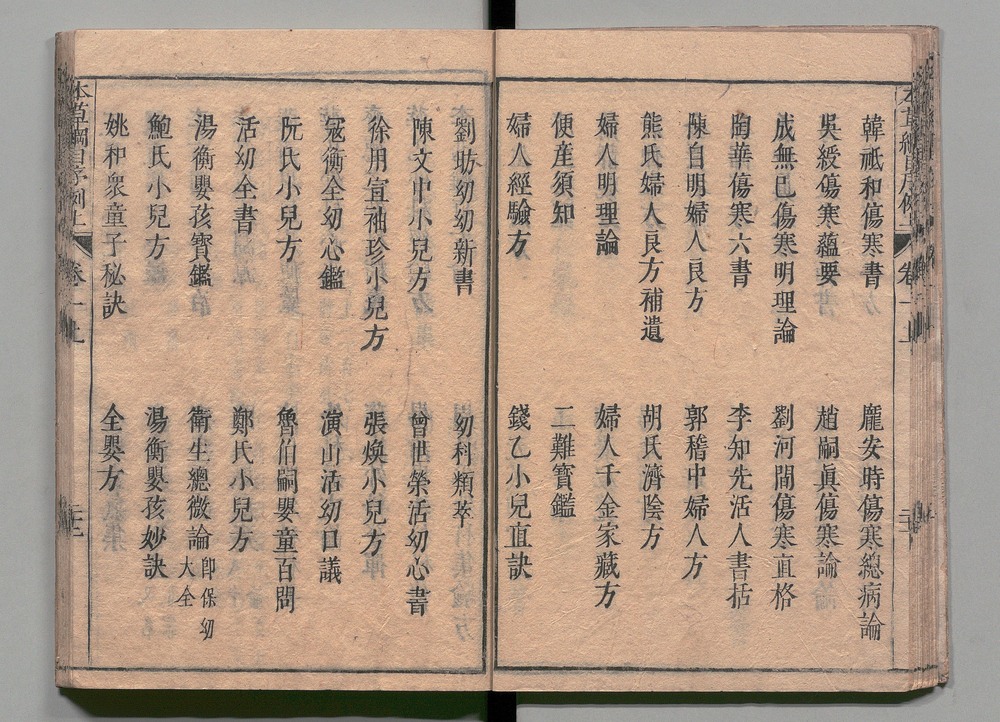 韓祗和傷寒書
龐安時傷寒總病論
吳綬傷寒蘊要
趙嗣眞傷寒論
成無已傷寒明理論
劉河間傷寒直格
陶華傷寒六書
李知先活人書括
陳自明婦人良方
郭稽中婦人方
熊氏婦人良方補遺
胡氏濟陰方
婦人明理論
婦人千金家藏方
便産須知
二難寳鑑
婦人經驗方
錢乙小兒直訣
劉昉幼幼新書
幼科類萃
陳文中小兒方
曾世榮活幼心書
徐用宣袖珍小兒方
張煥小兒方
寇衡全幼心鑑
演山活幼口議
阮氏小兒方
魯伯嗣嬰童百問
活幼全書
鄭氏小兒方
湯衡嬰孩寳鑑
衛生總微論 卽保幼大全
鮑氏小兒方
湯衡嬰孩妙訣
姚和衆童子秘訣
全嬰方
本草綱目序例上
卷一上